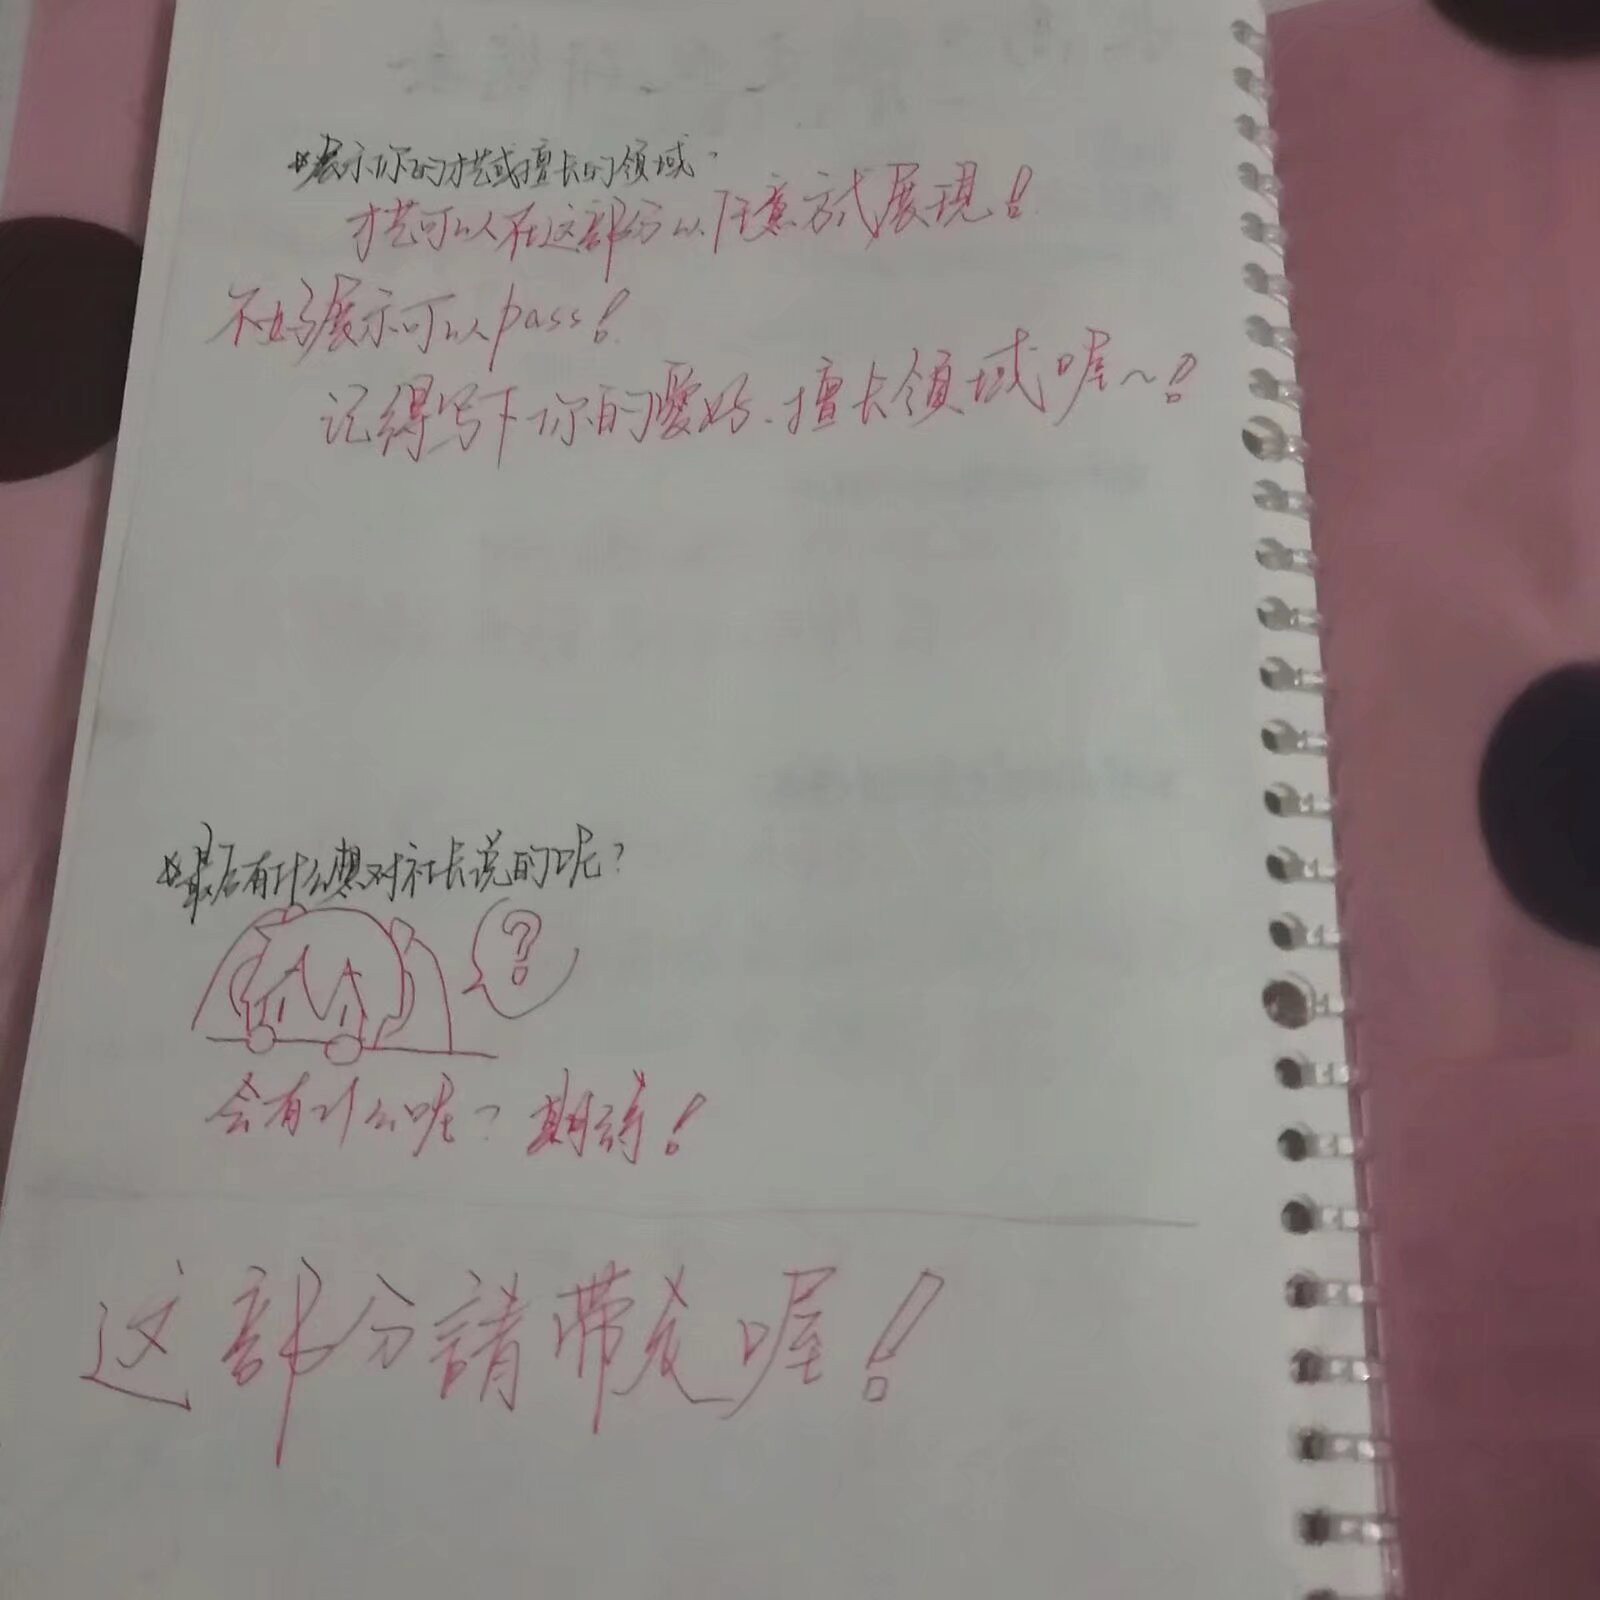 *展示你的才艺或擅长的领域.
才艺可以在这部分以任意方式展現!
不好展示可以pass!
记得写下你的愛好、擅长领域喔~!
*最后有什么想对社长说的呢?
?
会有什么呢? 期待!
这部分請带走喔!